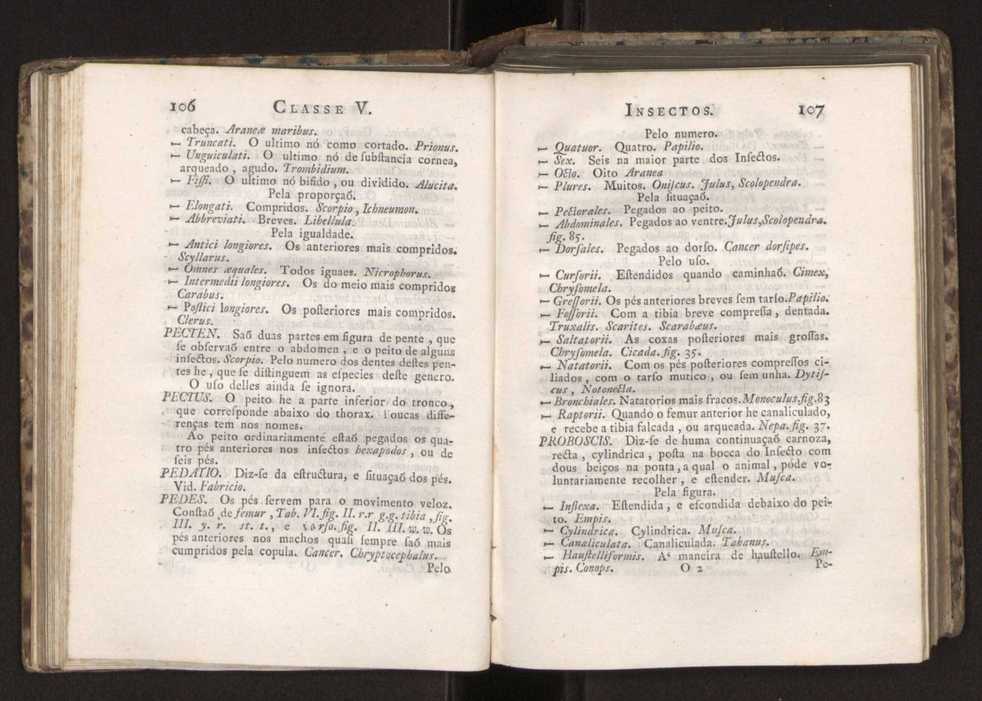 106 CLASSE V.
cabeça. Araneæ maribus.
— Truncati. O ultimo nó como cortado. Prionus.
— Unguiculati. O ultimo nó de ſubſtancia cornea,
arqueado, agudo. Trombidium.
— Fiſſi. O ultimo nó bifido, ou dividido. Alucita.
Pela proporçaõ.
— Elongati. Compridos. Scorpio, Ichneumon.
— Abbreviati. Breves. Libellula.
Pela igualdade.
— Antici longiores. Os anteriores mais compridos.
Scyllarus.
— Omnes æquales. Todos iguaes. Nicrophorus.
— Intermedii longiores. Os do meio mais compridos
Carabus.
— Poſtici longiores. Os poſteriores mais compridos.
Clerus.
PECTEN. Saõ duas partes em figura de pente, que
ſe obſervaõ entre o abdomen, e o peito de alguns
inſectos. Scorpio. Pelo numero dos dentes deſtes pen-
tes he, que ſe diſtinguem as eſpecies deſte genero.
O uſo delles ainda ſe ignora.
PECTUS. O peito he a parte inferior do tronco,
que correſponde abaixo do thorax. Poucas diffe-
renças tem nos nomes.
Ao peito ordinariamente eſtaõ pegados os qua-
tro pés anteriores nos inſectos hexapodos, ou de
ſeis pés.
PEDATIO. Diz-ſe da eſtructura, e ſituaçaõ dos pés.
Vid. Fabricio.
PEDES. Os pés ſervem para o movimento veloz.
Conſtaõ de femur, Tab. VI. fig. II. r.r g.g. tibia, fig.
III. y. r. st. t., e torſo. fig. II. III. w. w. Os
pés anteriores nos machos quaſi ſempre ſaõ mais
cumpridos pela copula. Cancer. Chryptocephalus.
Pelo
INSECTOS. 107
Pelo numero.
— Quatuor. Quatro. Papilio.
— Sex. Seis na maior parte dos Inſectos.
— Octo. Oito Aranea
— Plures. Muitos. Oniſcus. Julus, Scolopendra.
Pela ſituaçaõ.
— Pectorales. Pegados ao peito.
— Abdominales. Pegados ao ventre. Julus, Scolopendra.
fig. 85.
— Dorſales. Pegados ao dorſo. Cancer dorſipes.
Pelo uſo.
— Curſorii. Eſtendidos quando caminhaõ. Cimex,
Chryſomela.
— Greſſorii. Os pés anteriores breves ſem tarſo. Papilio.
— Foſſorii. Com a tibia breve compreſſa, dentada.
Truxalis. Scarites. Scarabæus.
— Saltatorii. As coxas poſteriores mais groſſas.
Chryſomela. Cicada. fig. 35.
— Natatorii. Com os pés poſteriores compreſſos ci-
liados, com o tarſo mutico, ou ſem unha. Dytiſ-
cus, Notonecta.
— Bronchiales. Natatorios mais fracos. Monoculus. fig. 83
— Raptorii. Quando o femur anterior he canaliculado,
e recebe a tibia falcada, ou arqueada. Nepa. fig. 37.
PROBOSCIS. Diz-ſe de huma continuaçaõ carnoza,
recta, cylindrica, poſta na bocca do Inſecto com
dous beiços na ponta, a qual o animal, póde vo-
luntariamente recolher, e eſtender. Muſca.
Pela figura.
— Inflexa. Eſtendida, e eſcondida debaixo do pei-
to. Empis.
— Cylindrica. Cylindrica. Muſca.
— Canaliculata. Canaliculada. Tabanus.
— Hauſtelliformis. A' maneira de hauſtello. Em-
pis. Conops. O 2 Pe-